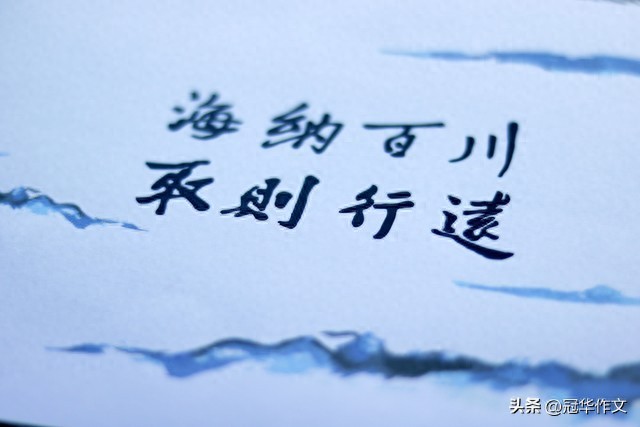 海纳百川
取则行远
头条 @冠华作文